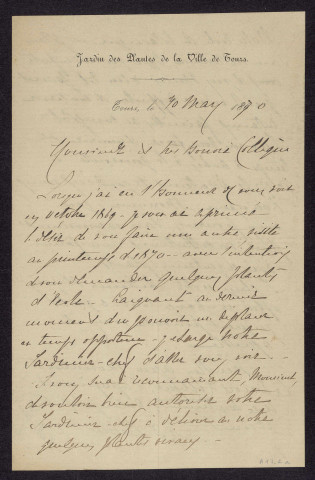 Jardin des Plantes de la Ville de Tours.
Tours le 30 Mars 1870
Monsieur et très honoré Collègue
Lorsque j'ai eu l'honneur de vous voir
en octobre 1869 je vous ai exprimé
le désir de vous faire une autre visite
au printemps de 1870 avec l'intention
de vous demander quelques plants
d'École. Craignant au dernier
moment de pouvoir me déplacer
en temps opportun je charge notre
Jardinier-chef d'aller vous voir.
Monsieur,
de vouloir bien autoriser votre
Jardinier-chef à délivrer au nôtre
quelques plants vivaces